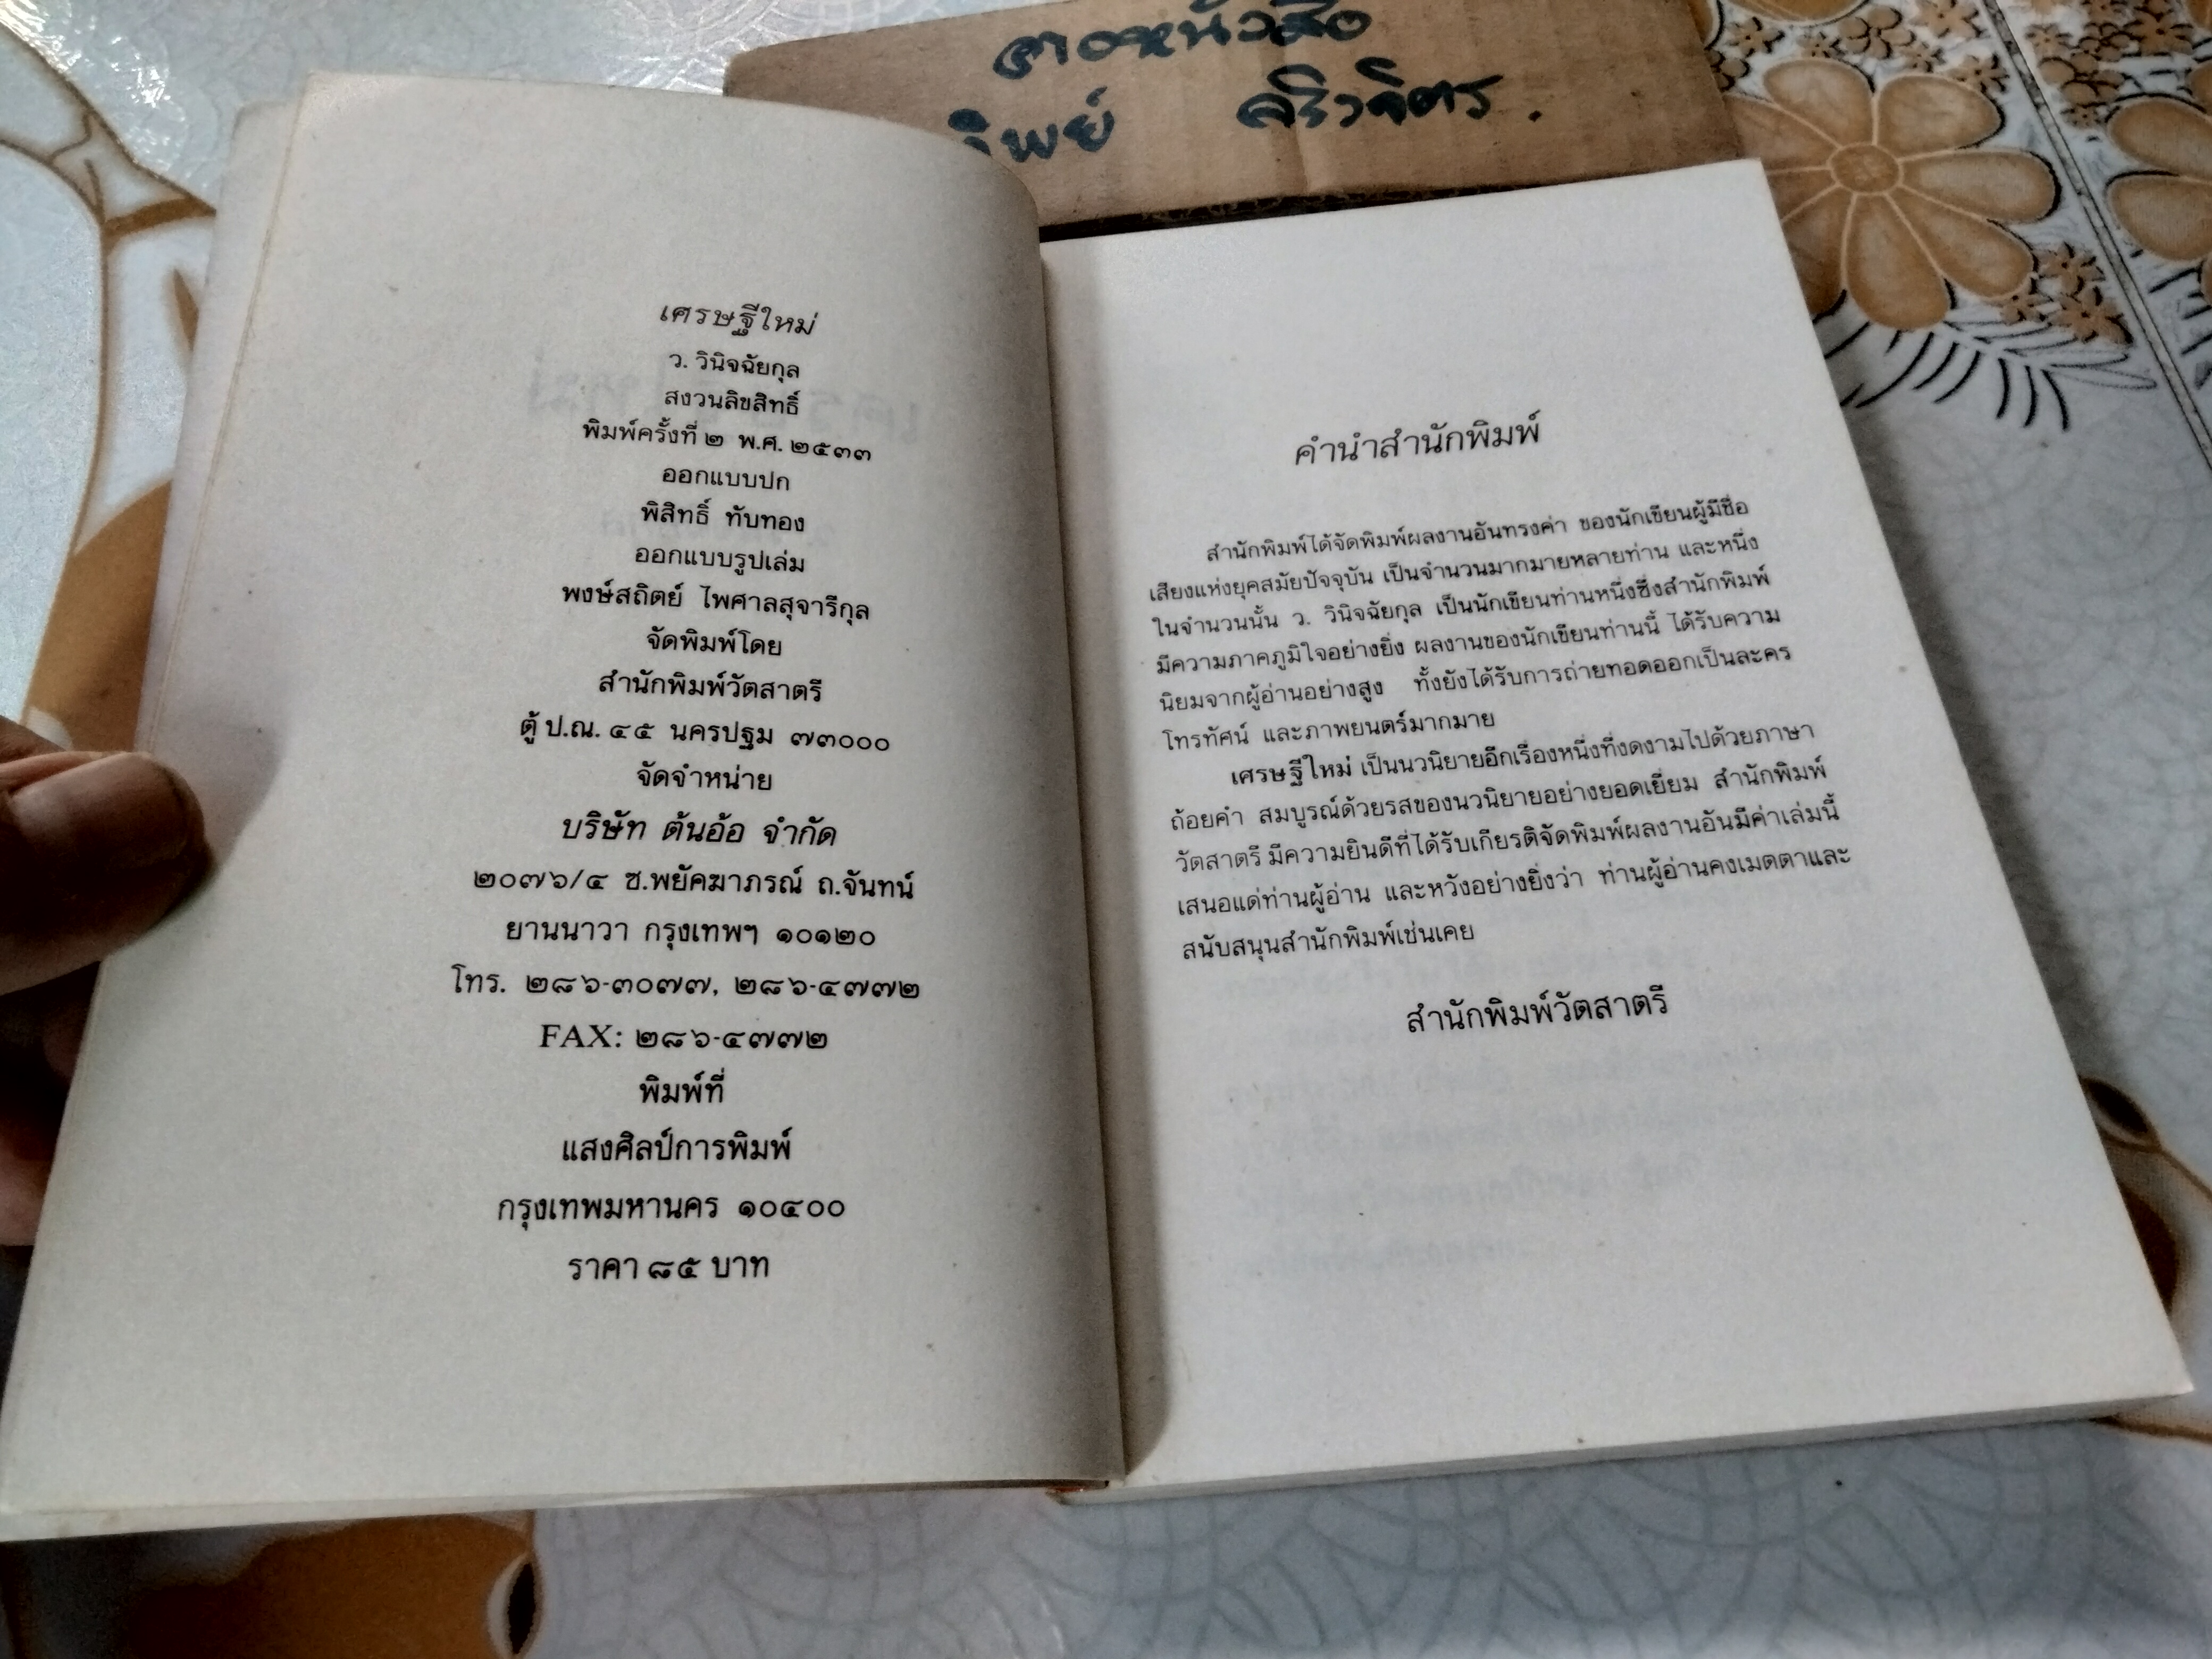 เศรษฐีใหม่
ว. วินิจฉัยกุล
สงวนลิขสิทธิ์
พิมพ์ครั้งที่ ๒ พ.ศ. ๒๕๓๓
ออกแบบปก
พิสิทธิ์ ทับทอง
ออกแบบรูปเล่ม
พงษ์สถิตย์ ไพศาลสุจารีกุล
จัดพิมพ์โดย
สำนักพิมพ์วัตสาตรี
ตู้ ป.ณ. ๔๕ นครปฐม ๗๓๐๐๐
จัดจำหน่าย
บริษัท ต้นอ้อ จำกัด
๒๐๗๖/๔ ซ.พยัคฆาภรณ์ ถ.จันทน์
ยานนาวา กรุงเทพฯ ๑๐๑๒๐
โทร. ๒๘๖-๓๐๗๗, ๒๘๖-๔๗๗๒
FAX: ๒๘๖-๔๗๗๒
พิมพ์ที่
แสงศิลป์การพิมพ์
กรุงเทพมหานคร ๑๐๔๐๐
ราคา ๘๕ บาท
คำนำสำนักพิมพ์
สำนักพิมพ์ได้จัดพิมพ์ผลงานอันทรงค่า ของนักเขียนผู้มีชื่อ
เสียงแห่งยุคสมัยปัจจุบัน เป็นจำนวนมากมายหลายท่าน และหนึ่ง
ในจำนวนนั้น ว. วินิจฉัยกุล เป็นนักเขียนท่านหนึ่งซึ่งสำนักพิมพ์
มีความภาคภูมิใจอย่างยิ่ง ผลงานของนักเขียนท่านนี้ ได้รับความ
นิยมจากผู้อ่านอย่างสูง ทั้งยังได้รับการถ่ายทอดออกเป็นละคร
โทรทัศน์ และภาพยนตร์มากมาย
เศรษฐีใหม่ เป็นนวนิยายอีกเรื่องหนึ่งที่งดงามไปด้วยภาษา
ถ้อยคำ สมบูรณ์ด้วยรสของนวนิยายอย่างยอดเยี่ยม สำนักพิมพ์
วัตสาตรี มีความยินดีที่ได้รับเกียรติจัดพิมพ์ผลงานอันมีค่าเล่มนี้
เสนอแด่ท่านผู้อ่าน และหวังอย่างยิ่งว่า ท่านผู้อ่านคงเมตตาและ
สนับสนุนสำนักพิมพ์เช่นเคย
สำนักพิมพ์วัตสาตรี